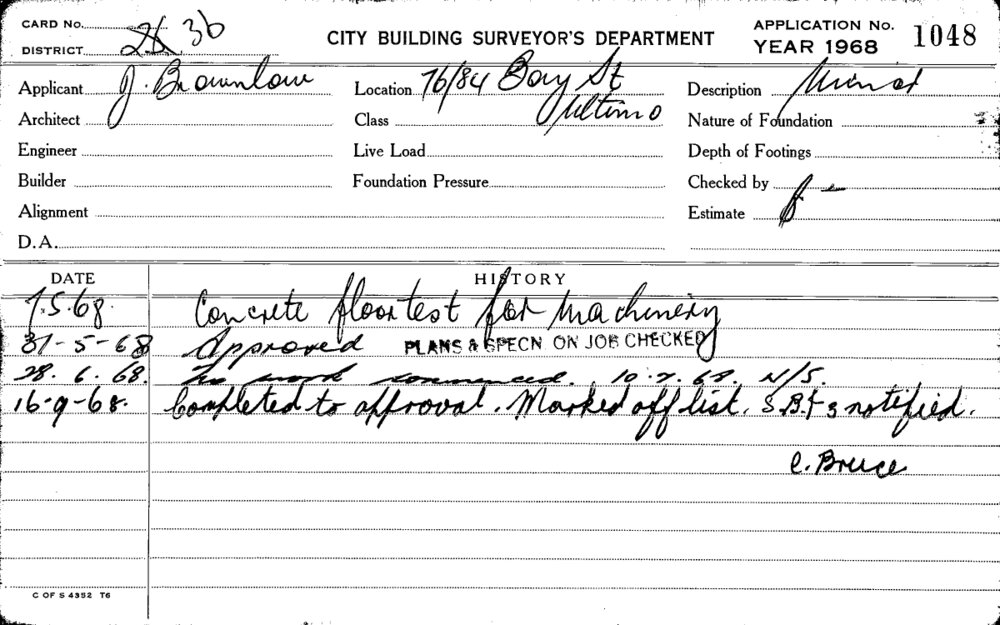 CARD No. 36
APPLICATION No. 1048
DISTRICT
CITY BUILDING SURVEYOR'S DEPARTMENT
YEAR 1968
Applicant J. Brownlow
Location 76/84 Bay St
Ultimo
Description Minor
Architect
Class
Nature of Foundation
Engineer
Live Load
Depth of Footings
Builder
Foundation Pressure
Checked by
Alignment
Estimate
D.A.
DATE HISTORY
7.5.68. Concrete floor test for machinery
31-5-68 Approved PLANS & SPECN ON JOB CHECKED
28.6.68. No work commenced. 10.7.68. N/S.
16-9-68. Completed to approval. Marked off list. notified.
C. Bruce
C OF S 4352 T6